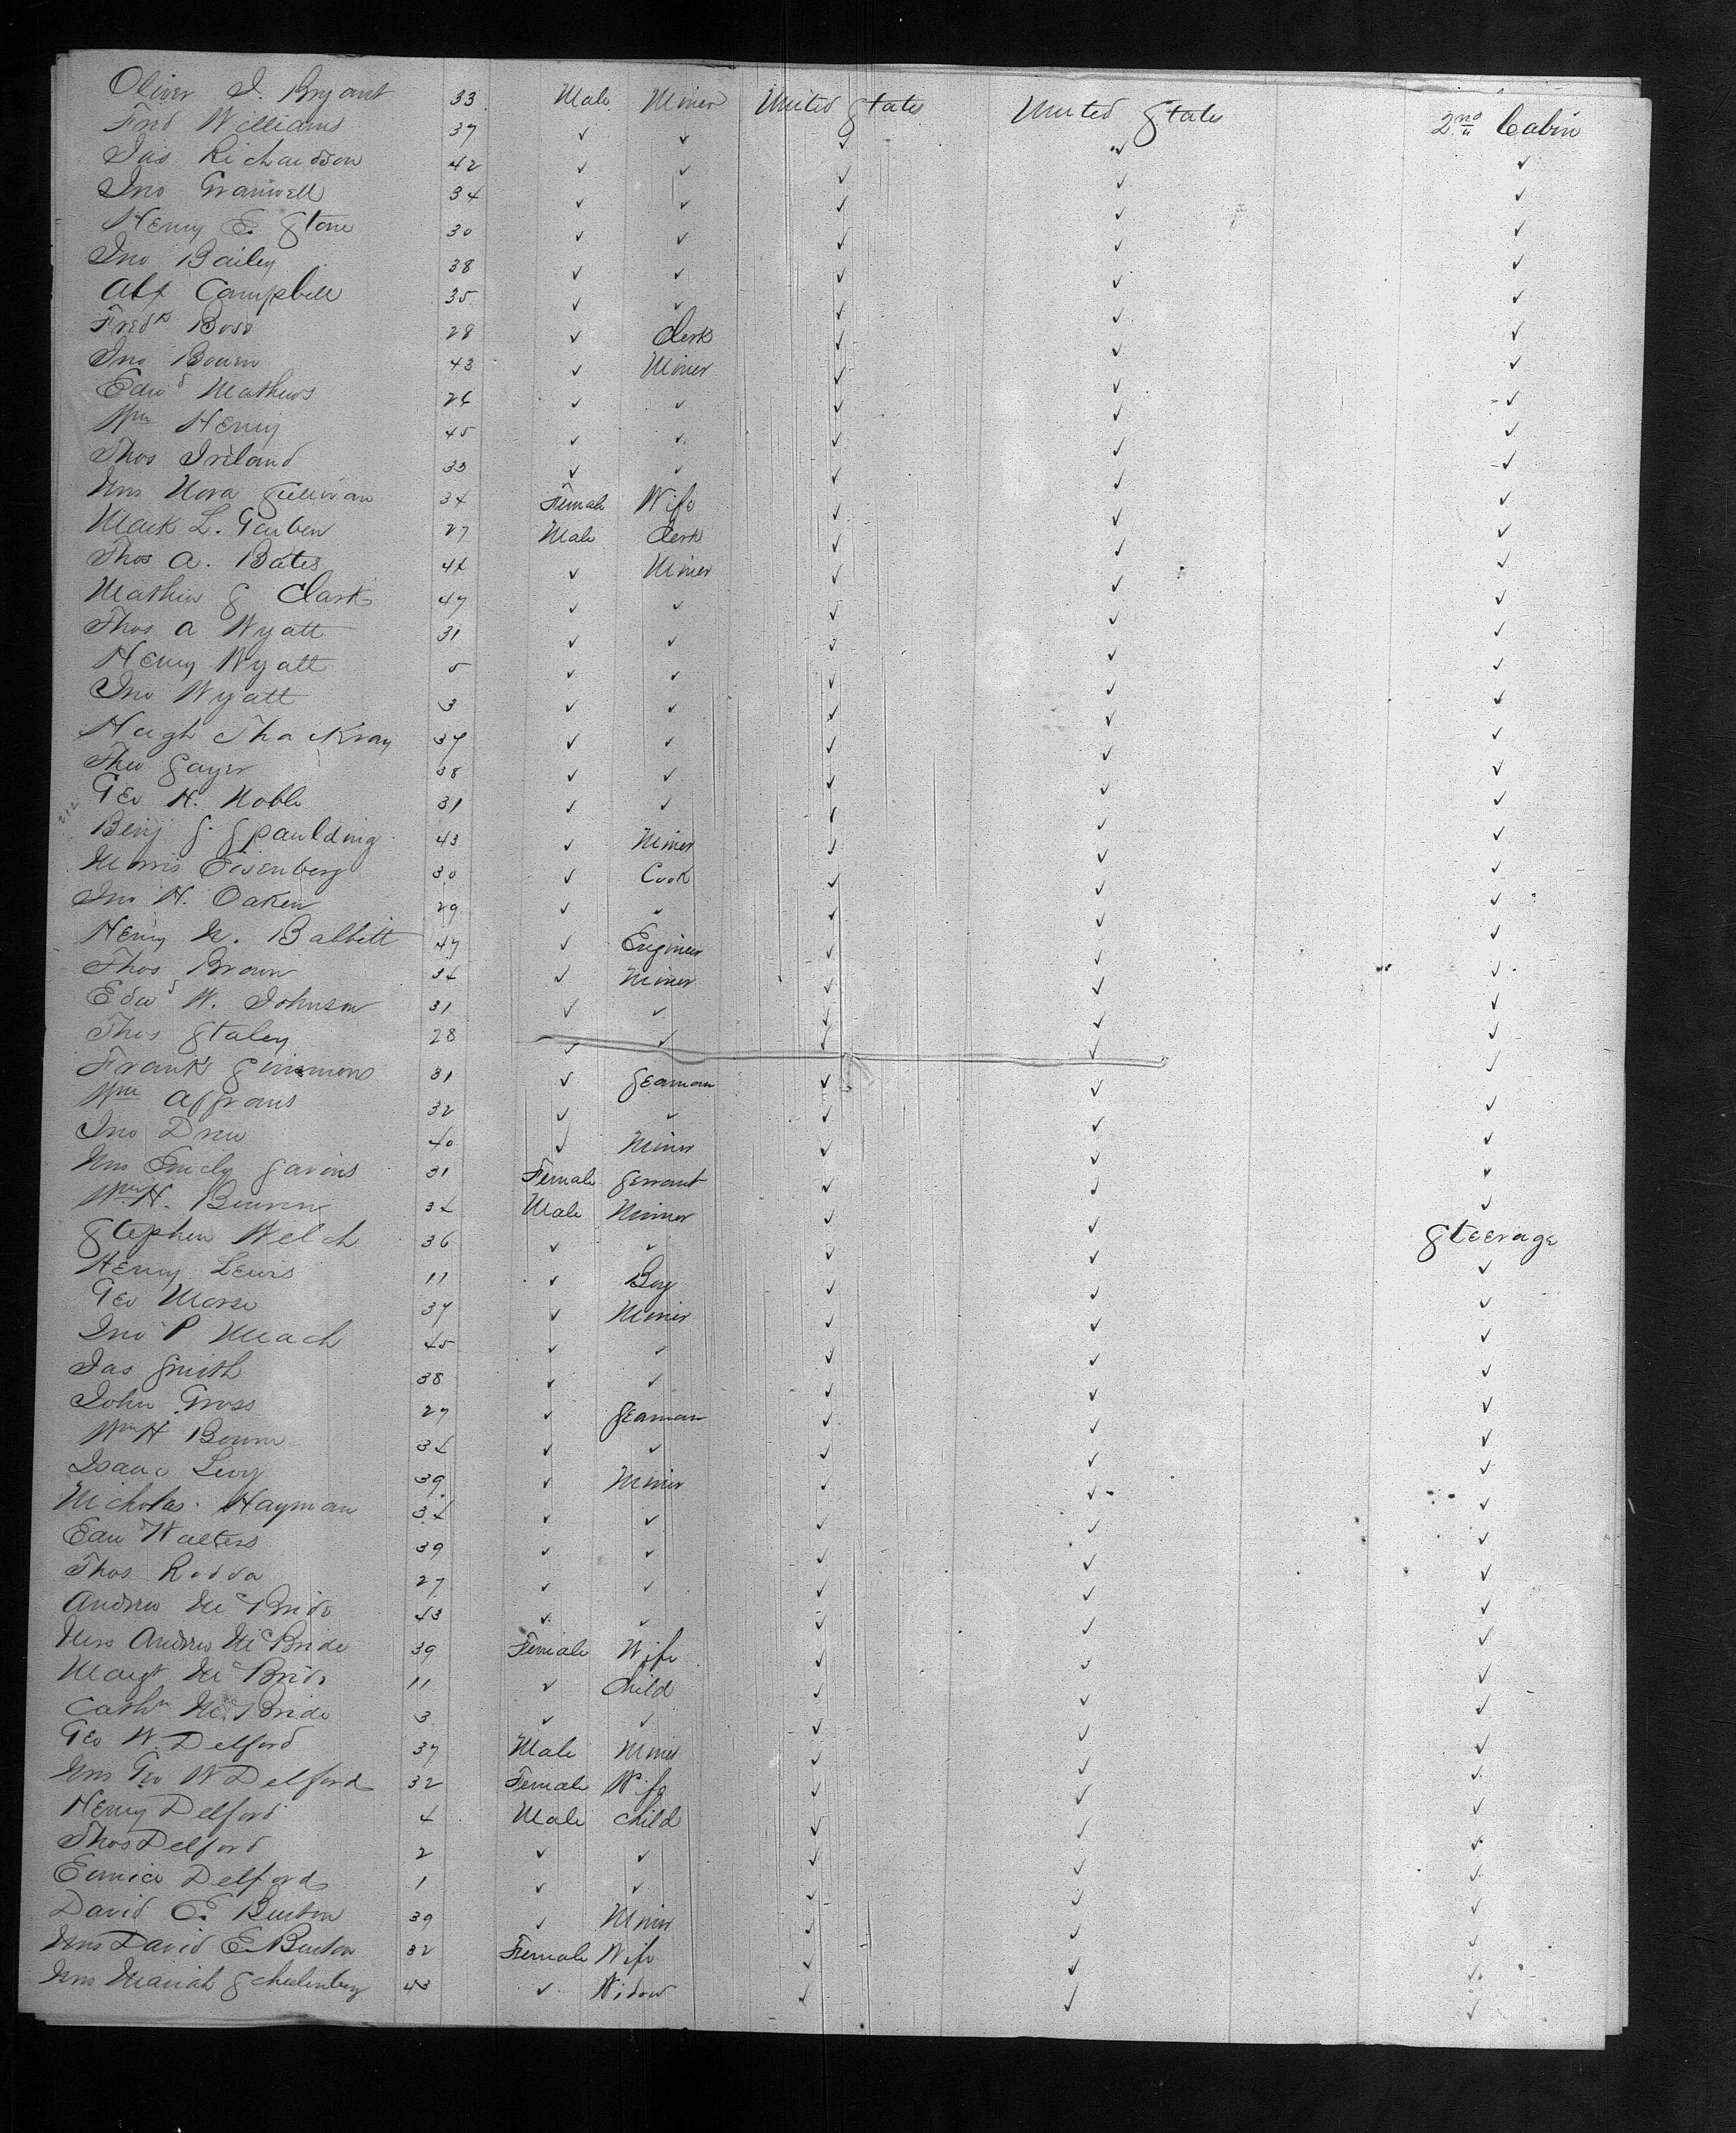 Oliver I. Bryant 33 Male Miner United States United States 2nd Cabin
Fred Williams 37 ✓ ✓ ✓ ✓ ✓
Jas Richardson 42 ✓ ✓ ✓ ✓ ✓
Jno Gramwell 34 ✓ ✓ ✓ ✓ ✓
Henry E. Stone 30 ✓ ✓ ✓ ✓ ✓
Jno Bailey 38 ✓ ✓ ✓ ✓ ✓
Alx Campbell 35 ✓ ✓ ✓ ✓ ✓
Fredk 28 ✓ Clerk ✓ ✓ ✓
Jno Bowen 43 ✓ Miner ✓ ✓ ✓
Edwd Mathews 26 ✓ ✓ ✓ ✓ ✓
Wm Henry 45 ✓ ✓ ✓ ✓ ✓
Thos Ireland 33 ✓ ✓ ✓ ✓ ✓
Mrs Nora Sullivan 34 Female Wife ✓ ✓ ✓
Mark L. Garben 27 Male Clerk ✓ ✓ ✓
Thos A. Bates 44 ✓ Miner ✓ ✓ ✓
Mathew S Clark 47 ✓ ✓ ✓ ✓ ✓
Thos A Wyatt 31 ✓ ✓ ✓ ✓ ✓
Henry Wyatt 5 ✓ ✓ ✓ ✓ ✓
Jno Wyatt 3 ✓ ✓ ✓ ✓ ✓
Hugh Thackray 37 ✓ ✓ ✓ ✓ ✓
Theo Sayer 38 ✓ ✓ ✓ ✓ ✓
Geo H. Noble 31 ✓ ✓ ✓ ✓ ✓
Benj S. Spaulding 43 ✓ Miner ✓ ✓ ✓
Morris Eisenberg 30 ✓ Cook ✓ ✓ ✓
Jno H. Oaken 29 ✓ ✓ ✓ ✓ ✓
Henry M. Balbitt 47 ✓ Engineer ✓ ✓ ✓
Thos Brown 34 ✓ Miner ✓ ✓ ✓
Edwd W. Johnson 31 ✓ ✓ ✓ ✓ ✓
Thos Staley 28 ✓ ✓ ✓ ✓ ✓
Frank Simmons 31 ✓ Seaman ✓ ✓ ✓
Wm Affrans 32 ✓ ✓ ✓ ✓ ✓
Jno Drew 40 ✓ Miner ✓ ✓ ✓
Mrs Emily Savins 31 Female Servant ✓ ✓ ✓
Wm H. Bourn 34 Male Minner ✓ ✓ ✓
Stephen Welch 36 ✓ ✓ ✓ ✓ Steerage
Henry Lewis 11 ✓ Boy ✓ ✓ ✓
Geo Morse 37 ✓ Miner ✓ ✓ ✓
Jno P Meach 45 ✓ ✓ ✓ ✓ ✓
Jas Smith 38 ✓ ✓ ✓ ✓ ✓
John Gross 27 ✓ Seaman ✓ ✓ ✓
Wm H Bourn 34 ✓ ✓ ✓ ✓ ✓
Isaac Levy 39 ✓ Miner ✓ ✓ ✓
Nicholas Hayman 34 ✓ ✓ ✓ ✓ ✓
Edwd Walters 39 ✓ ✓ ✓ ✓ ✓
Thos Rodda 27 ✓ ✓ ✓ ✓ ✓
Andrew McBride 43 ✓ ✓ ✓ ✓ ✓
Mrs Andrew McBride 39 Female Wife ✓ ✓ ✓
Margt McBride 11 ✓ Child ✓ ✓ ✓
Cathn McBride 3 ✓ ✓ ✓ ✓ ✓
Geo W. Delford 37 Male Miner ✓ ✓ ✓
Mrs Geo W Delford 32 Female Wife ✓ ✓ ✓
Henry Delford 4 Male Child ✓ ✓ ✓
Thos Delford 2 ✓ ✓ ✓ ✓ ✓
Eunice Delford 1 ✓ ✓ ✓ ✓ ✓
David E. Burton 39 ✓ Miner ✓ ✓ ✓
Mrs David E. Burton 32 Female Wife ✓ ✓ ✓
Mrs Mariah Schulenberg 43 ✓ Widow ✓ ✓ ✓